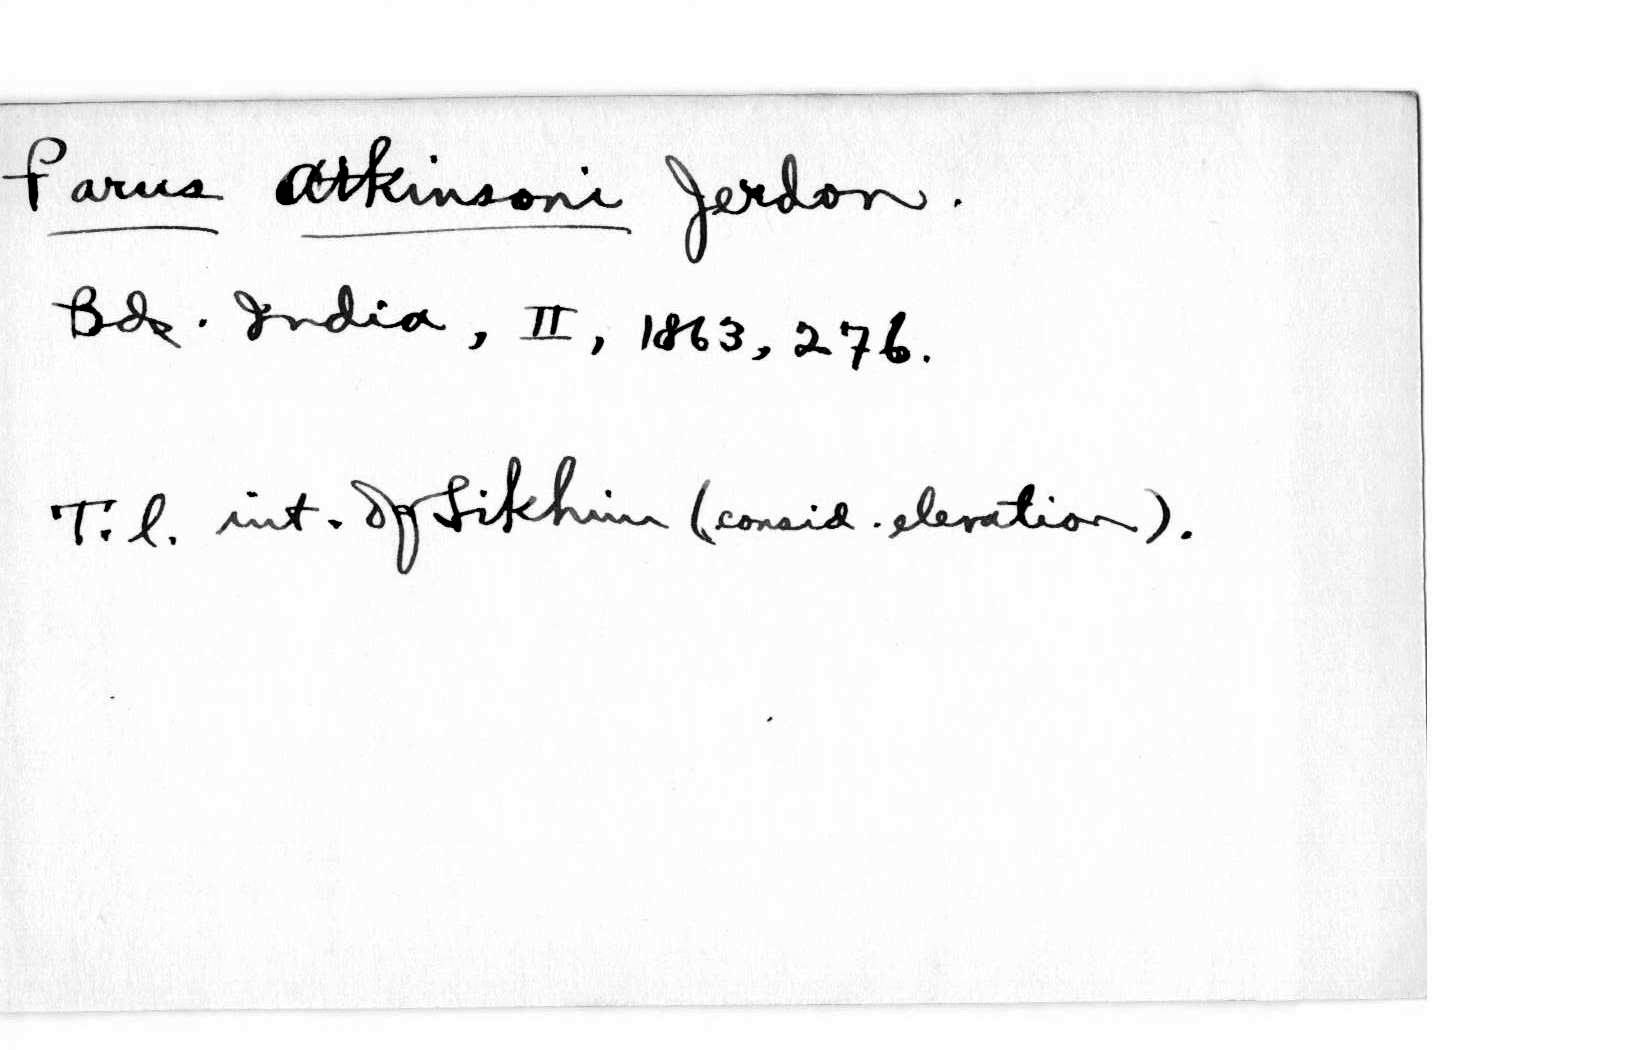 Parus atkinsoni Jerdon.
Bds. India, II, 1863, 276.
T. l. int. of Sikhim (consid. elevation).